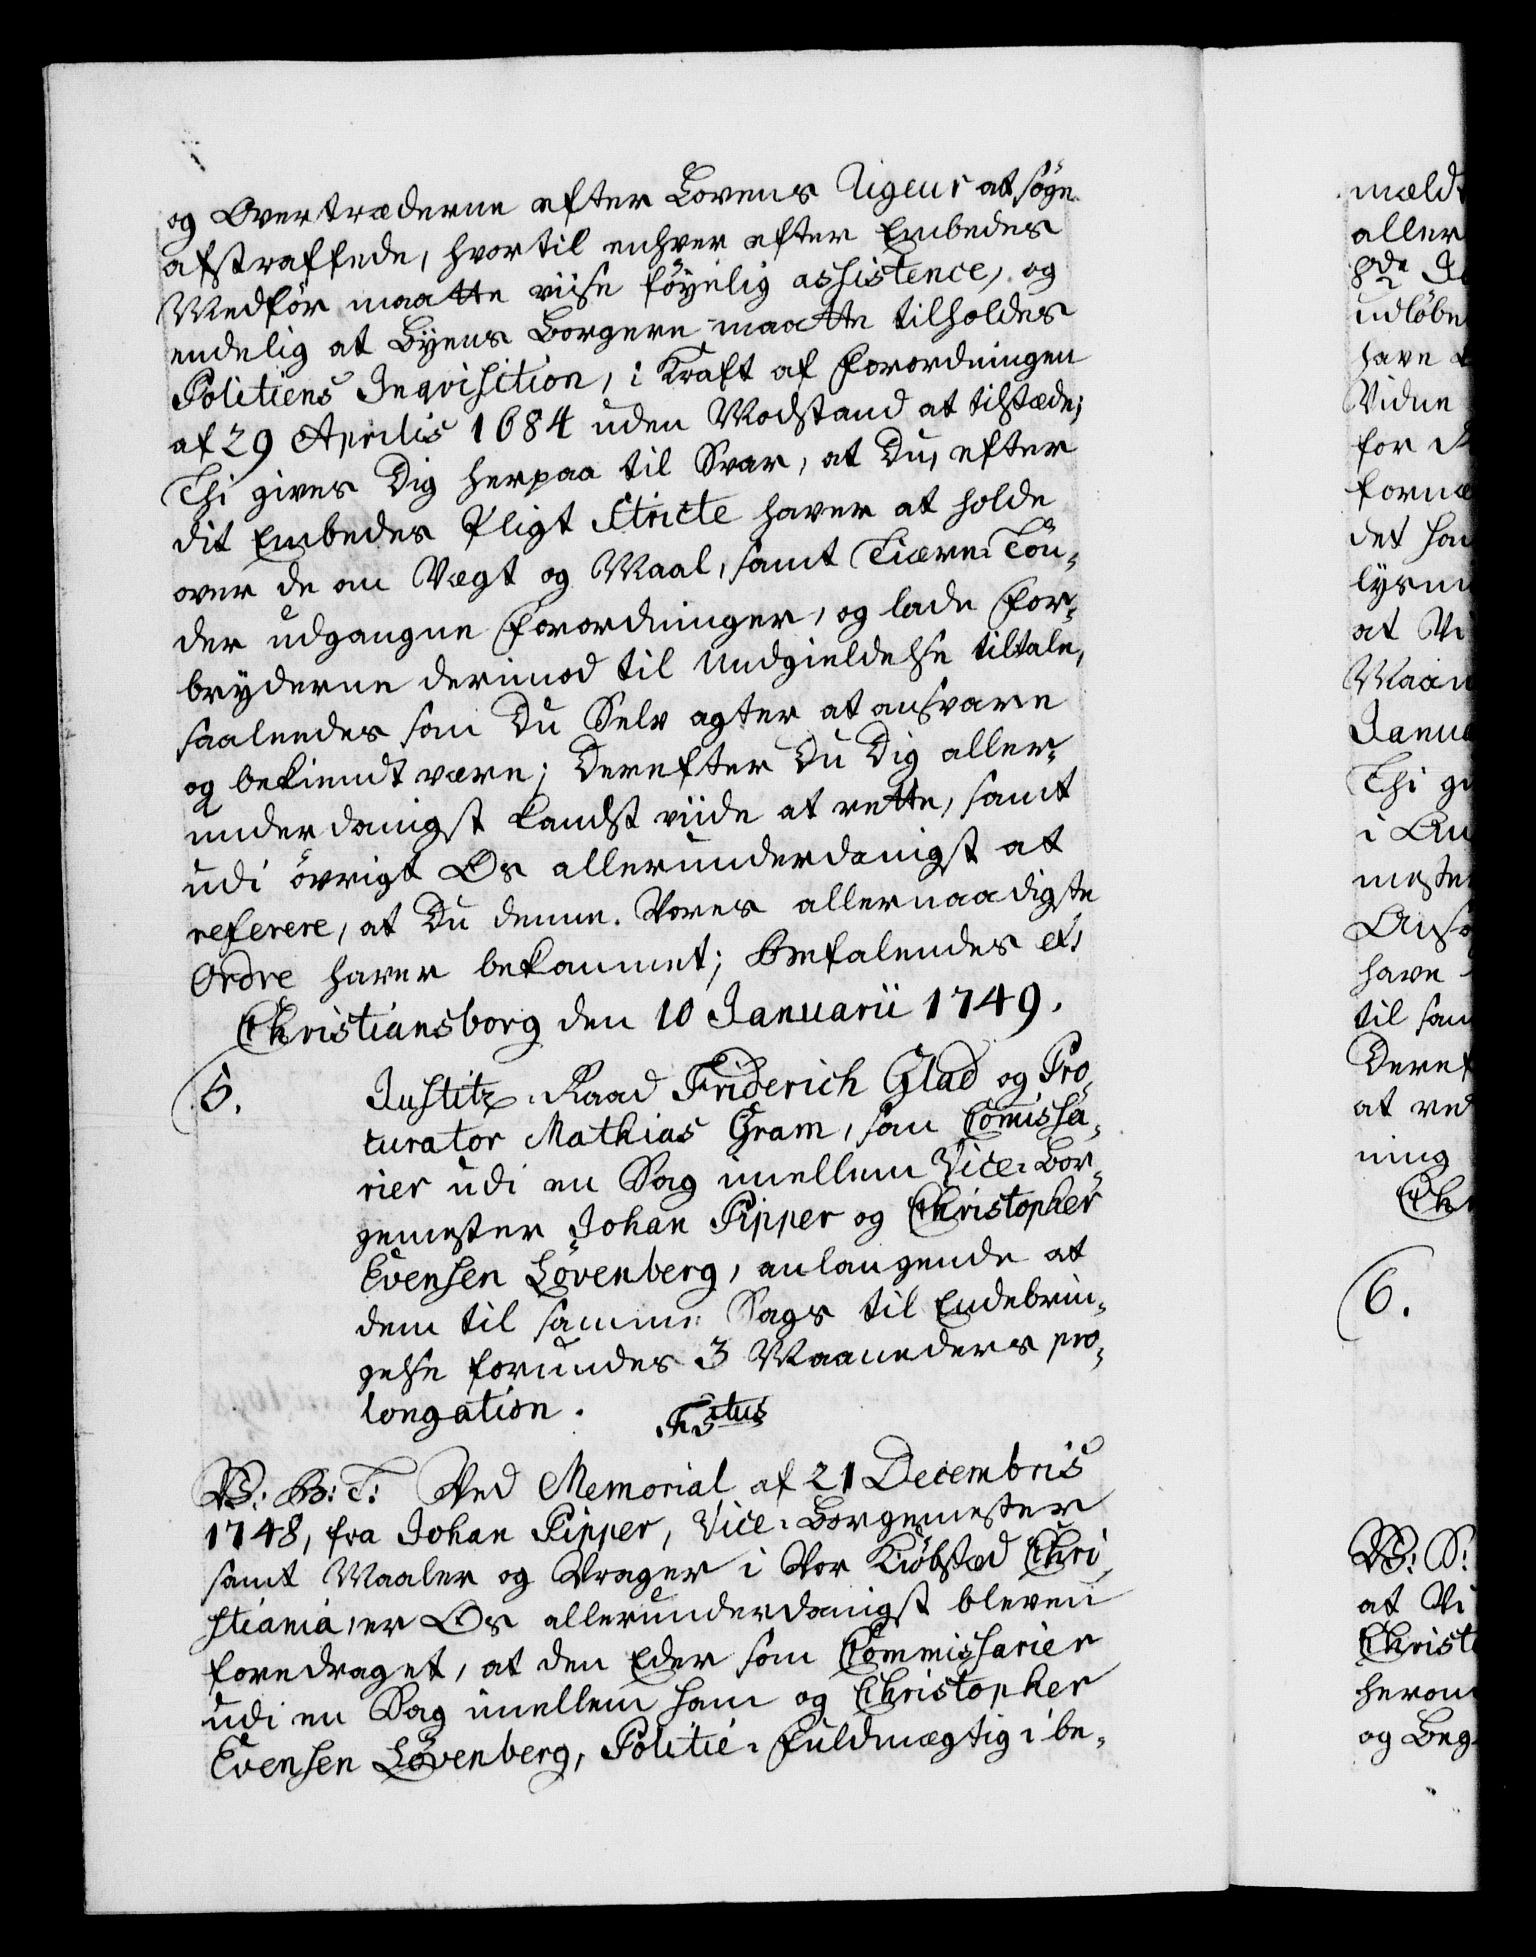 og Overtræderne efter Lovens Rigeur at søge
afstraffede, hvortil enhver efter Embedes
Medfør maatte viise føyelig assistence, og
endelig at Byens Borgere maatte tilholdes
Politiens Inqvisition, i Kraft af Forordningen
af 29 Aprilis 1684 uden Modstand at tilstæde;
Thi gives Dig herpaa til Svar, at Du, efter
dit Embedes Pligt stricte haver at holde
over de om Vægt og Maal, samt Tiære-Tøn-
der udgangne Forordninger, og lade For-
bryderne derimod til Undgieldelse tiltale,
saaleedes som Du Selv agter at ansvare
og bekiendt være; Derefter Du Dig aller-
underdanigst kandst viide at rette, samt
udi øvrigt Os allerunderdanigst at
referere, at Du denne Vores allernaadigste
Ordre haver bekommet; Befalendes etc
Christiansborg den 10 Januarii 1749.
5.
Justitz-Raad Friderich Glad og Pro-
curator Mathias Gram, som Comissa-
rier udi en Sag imellem Vice-Bor-
gemester Johan Pipper og Christopher
Evensen Løvenberg, anlangende at
dem til samme Sags til Endebrin-
gelse forundes 3 Maaneders pro-
longation.
F5tus
V: G: T: Ved Memorial af 21 Decembris
1748, fra Johan Pipper, Vice-Borgemester
samt Maaler og Vrager i Vor Kiøbsted Chri-
stiania, er Os allerunderdanigst bleven
foredraget, at den Eder som Commissarier
udi en Sag imellem ham og Christopher
Evensen Løvenberg, Politie-Fuldmægtig i be-
mældt
aller
8de Ja
udløbe
have
Vidne
for
fornæ
det ha
lysni
at Vi
Maan
Janua
Thi gi
i An
meste
Anse
have
til sam
Deref
at ved
ning
Chr
6.
V: S:
at Vi
Christi
herom
og Beg